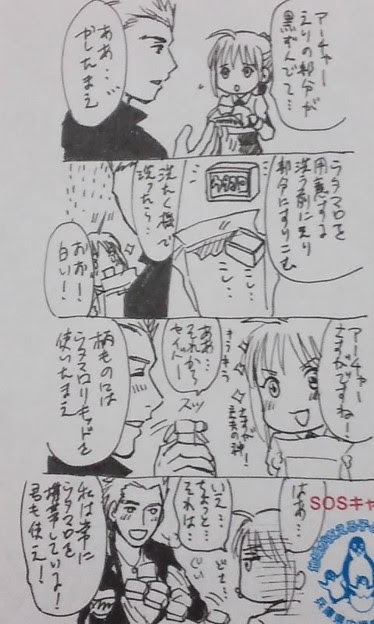 アーチャー
えりの部分が
黒ずんでて…
ああ…
かしたまえ
ウタマロを
用意する
洗う前にえり
部分にすりこむ
うたまろ
こし…
こし…
洗たく機で
洗ったら…
おお!
白い!
アーチャー
さすがですね!
きらきら
さすが!
主夫の神!
ああ…
それから
セイバー
スッ
柄ものには
ウタマロリキッドを
使いたまえ
はあ…
いえ…
ちょっと…
それは…
どさ…
ぐい
私は常に
ウタマロを
携帯しているよ!
君も使え!
SOSキャ
兵庫県